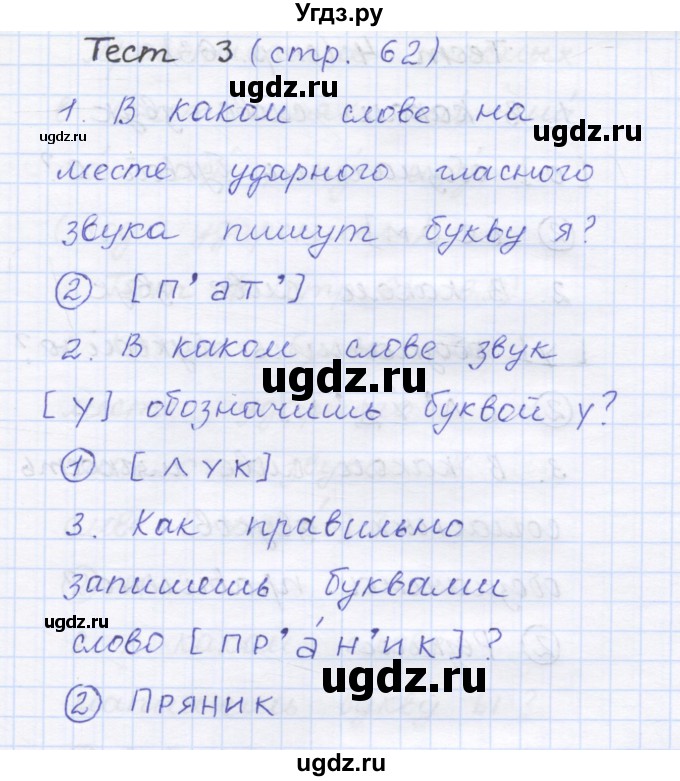 Угдз.ру
Тест 3 (стр. 62)
ugdz.ru
1. В каком слове на
ugdz.ru
ugdz.ru
месте ударного гласного
звука пишут букву я?
② [п’ат’]
ugdz.ru
ugdz.ru
2. В каком слове звук
ugdz.ru
[у] обозначишь буквой у?
① [лук]
ugdz.ru
ugdz.ru
3. Как правильно
запишешь буквами
ugdz.ru
слово [пр’а́н’ик]?
ugdz.ru
② Пряник
ugdz.ru
ugdz.ru